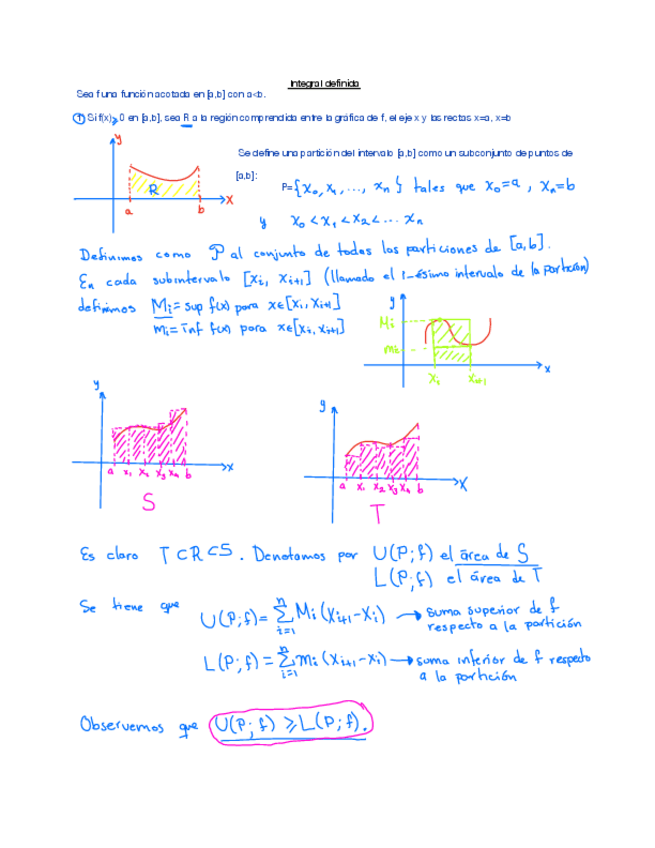 Integral definida
Sea f una función acotada en [a,b] con a<b.
① Si f(x)≥0 en [a,b], sea R a la región comprendida entre la gráfica de f, el eje x y las rectas x=a, x=b
y
R
a
b
x
Se define una partición del intervalo [a,b] como un subconjunto de puntos de
[a,b]:
P={x₀, x₁, ..., xₙ} tales que x₀=a , xₙ=b
y x₀<x₁<x₂<... xₙ
Definimos como P al conjunto de todas las particiones de [a,b].
En cada subintervalo [xᵢ, xᵢ₊₁] (llamado el i-ésimo intervalo de la partición)
definimos Mᵢ= sup f(x) para x∈[xᵢ, xᵢ₊₁]
mᵢ= inf f(x) para x∈[xᵢ, xᵢ₊₁]
y
Mᵢ
mᵢ
xᵢ xᵢ₊₁
x
y
a x₁ x₂ x₃ x₄ b
x
S
y
a x₁ x₂ x₃ x₄ b
x
T
Es claro T⊂R⊂S. Denotamos por U(P;f) el área de S
L(P;f) el área de T
Se tiene que U(P;f)= ∑ⁿᵢ₌₁ Mᵢ(xᵢ₊₁-xᵢ) → suma superior de f
respecto a la partición
L(P;f) = ∑ⁿᵢ₌₁ mᵢ(xᵢ₊₁-xᵢ) → suma inferior de f respecto
a la partición
Observemos que U(P;f) ≥ L(P;f).